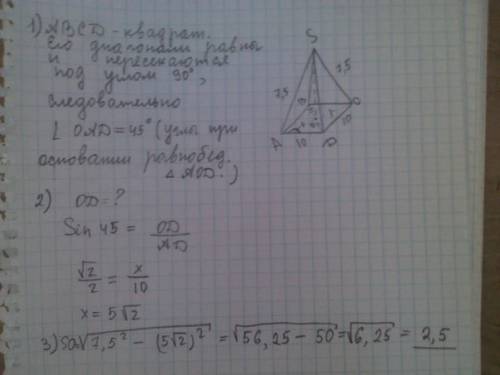 1) ABCD - квадрат.
Его диагонали равны
и пересекаются
под углом 90°,
следовательно
∠ OAD = 45° (углы при
основании равнобед.
△ AOD.)
2) OD = ?
Sin 45 = OD/AD
√2/2 = x/10
x = 5√2
3) SO √7,5² - (5√2)² = √56,25 - 50 = √6,25 = 2,5
S
7,5
7,5
A
10
D
10